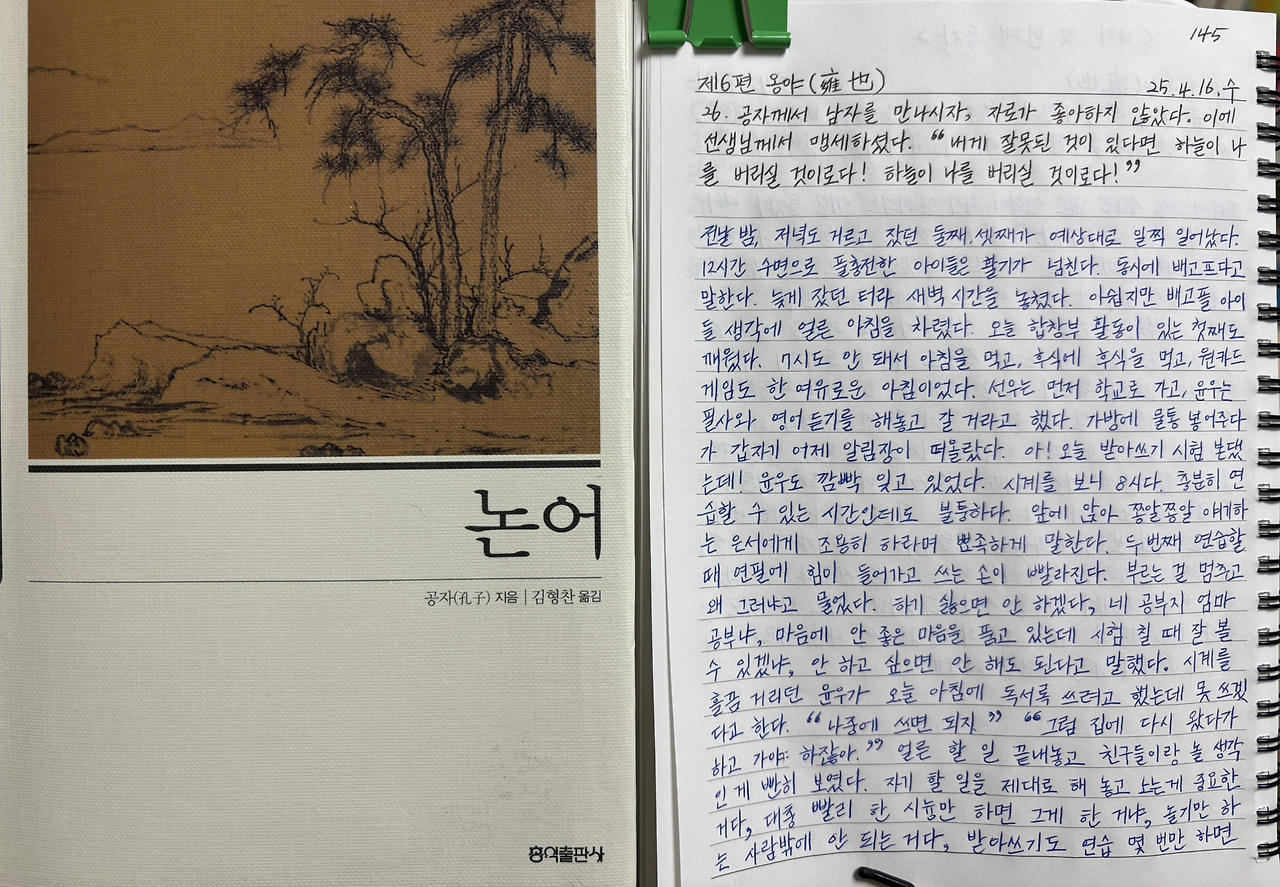 논어
공자(孔子) 지음 | 김형찬 옮김
홍익출판사
145
제6편 옹야(雍也) 25.4.16.수
26. 공자께서 남자를 만나시자, 자로가 좋아하지 않았다. 이에
선생님께서 맹세하셨다. "내게 잘못된 것이 있다면 하늘이 나
를 버리실 것이로다! 하늘이 나를 버리실 것이로다!"
전날 밤, 저녁도 거르고 잤던 둘째,셋째가 예상대로 일찍 일어났다.
12시간 수면으로 풀충전한 아이들은 활기가 넘친다. 동시에 배고프다고
말한다. 늦게 잤던 터라 새벽 시간을 놓쳤다. 아쉽지만 배고플 아이
들 생각에 얼른 아침을 차렸다. 오늘 합창부 활동이 있는 첫째도
깨웠다. 7시도 안 돼서 아침을 먹고, 후식에 후식을 먹고, 원카드
게임도 한 여유로운 아침이었다. 선우는 먼저 학교로 가고, 윤우는
필사와 영어 듣기를 해놓고 갈 거라고 했다. 가방에 물통 넣어주다
가 갑자기 어제 알림장이 떠올랐다. 아! 오늘 받아쓰기 시험 본댔
는데! 윤우도 깜빡 잊고 있었다. 시계를 보니 8시다. 충분히 연
습할 수 있는 시간인데도 불퉁하다. 앞에 앉아 쫑알쫑알 얘기하
는 은서에게 조용히 하라며 뾰족하게 말한다. 두번째 연습할
때 연필에 힘이 들어가고 쓰는 손이 빨라진다. 부르는 걸 멈추고
왜 그러냐고 물었다. 하기 싫으면 안 하겠다, 네 공부지 엄마
공부냐, 마음에 안 좋은 마음을 품고 있는데 시험 칠 때 잘 볼
수 있겠냐, 안 하고 싶으면 안 해도 된다고 말했다. 시계를
흘끔 거리던 윤우가 오늘 아침에 독서록 쓰려고 했는데 못 쓰겠
다고 한다. "나중에 쓰면 되지" "그럼 집에 다시 왔다가
하고 가야 하잖아." 얼른 할 일 끝내놓고 친구들이랑 놀 생각
인 게 빤히 보였다. 자기 할 일을 제대로 해 놓고 노는게 중요한
거다, 대충 빨리 한 시늉만 하면 그게 한 거냐, 놀기만 하
는 사람밖에 안 되는 거다, 받아쓰기도 연습 몇 번만 하면